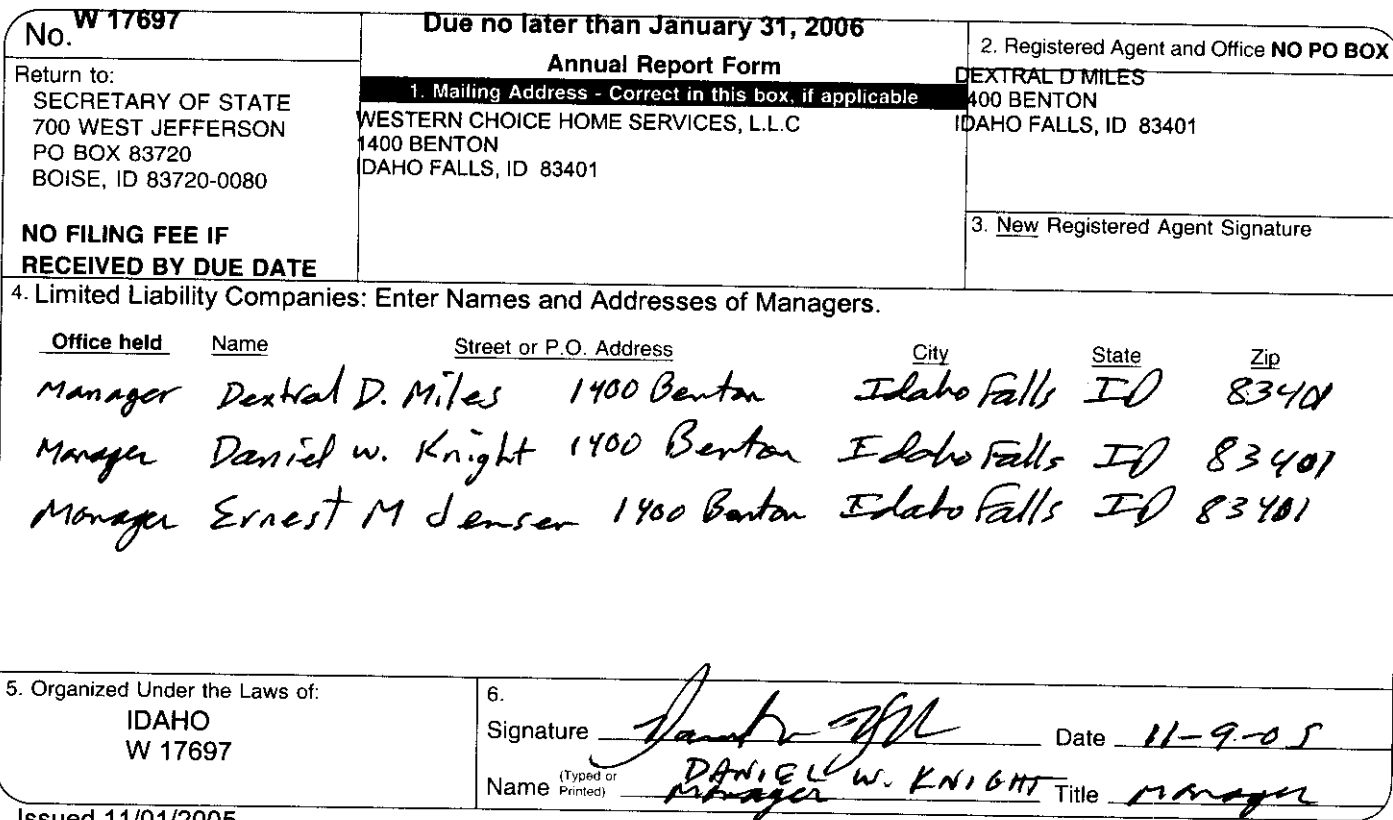 No. W 17697
Return to:
SECRETARY OF STATE
700 WEST JEFFERSON
PO BOX 83720
BOISE, ID 83720-0080
NO FILING FEE IF
RECEIVED BY DUE DATE
Due no later than January 31, 2006
Annual Report Form
1. Mailing Address - Correct in this box, if applicable
WESTERN CHOICE HOME SERVICES, L.L.C
1400 BENTON
IDAHO FALLS, ID 83401
2. Registered Agent and Office NO PO BOX
DEXTRAL D MILES
1400 BENTON
IDAHO FALLS, ID 83401
3. New Registered Agent Signature
4. Limited Liability Companies: Enter Names and Addresses of Managers.
Office held Name Street or P.O. Address City State Zip
Manager Dextral D. Miles 1400 Benton Idaho Falls ID 83401
Manager Daniel W. Knight 1400 Benton Idaho Falls ID 83401
Manager Ernest M Jensen 1400 Benton Idaho Falls ID 83401
5. Organized Under the Laws of:
IDAHO
W 17697
6.
Signature Date 11-9-05
Name (Typed or Printed) DANIEL W. KNIGHT Manager Title Manager
Issued 11/01/2005